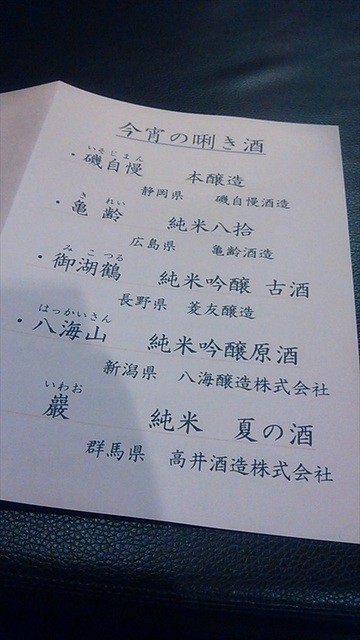 今宵の唎き酒
いそじまん
・磯自慢 本醸造
静岡県 磯自慢酒造
きれい
・亀齢 純米八拾
広島県 亀齢酒造
みこつる
・御湖鶴 純米吟醸 古酒
長野県 菱友醸造
はっかいさん
・八海山 純米吟醸原酒
新潟県 八海醸造株式会社
いわお
巖 純米 夏の酒
群馬県 高井酒造株式会社